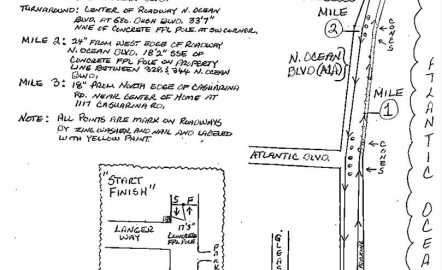 TURNAROUND: CENTER OF ROADWAY N. OCEAN
BLVD. AT 33'7"
NNE OF CONCRETE FPL POLE AT SW CORNER.
MILE 2: 24" FROM WEST EDGE OF ROADWAY
N. OCEAN BLVD. 18'2" SSE OF
CONCRETE FPL POLE ON PROPERTY
LINE BETWEEN 328 & 344 N. OCEAN
BLVD.
MILE 3: 18" FROM NORTH EDGE OF CASUARINA
RD. NEAR CENTER OF HOME AT
1117 CASUARINA RD.
NOTE: ALL POINTS ARE MARK ON ROADWAYS
BY WASHER AND NAIL AND LABELED
WITH YELLOW PAINT.
MILE
2
N. OCEAN
BLVD (A1A)
MILE
1
CONES
CONES
ATLANTIC OCEA
ATLANTIC BLVD.
"START
FINISH"
S F
LANGER
WAY
17'5"
CONCRETE
FPL POLE